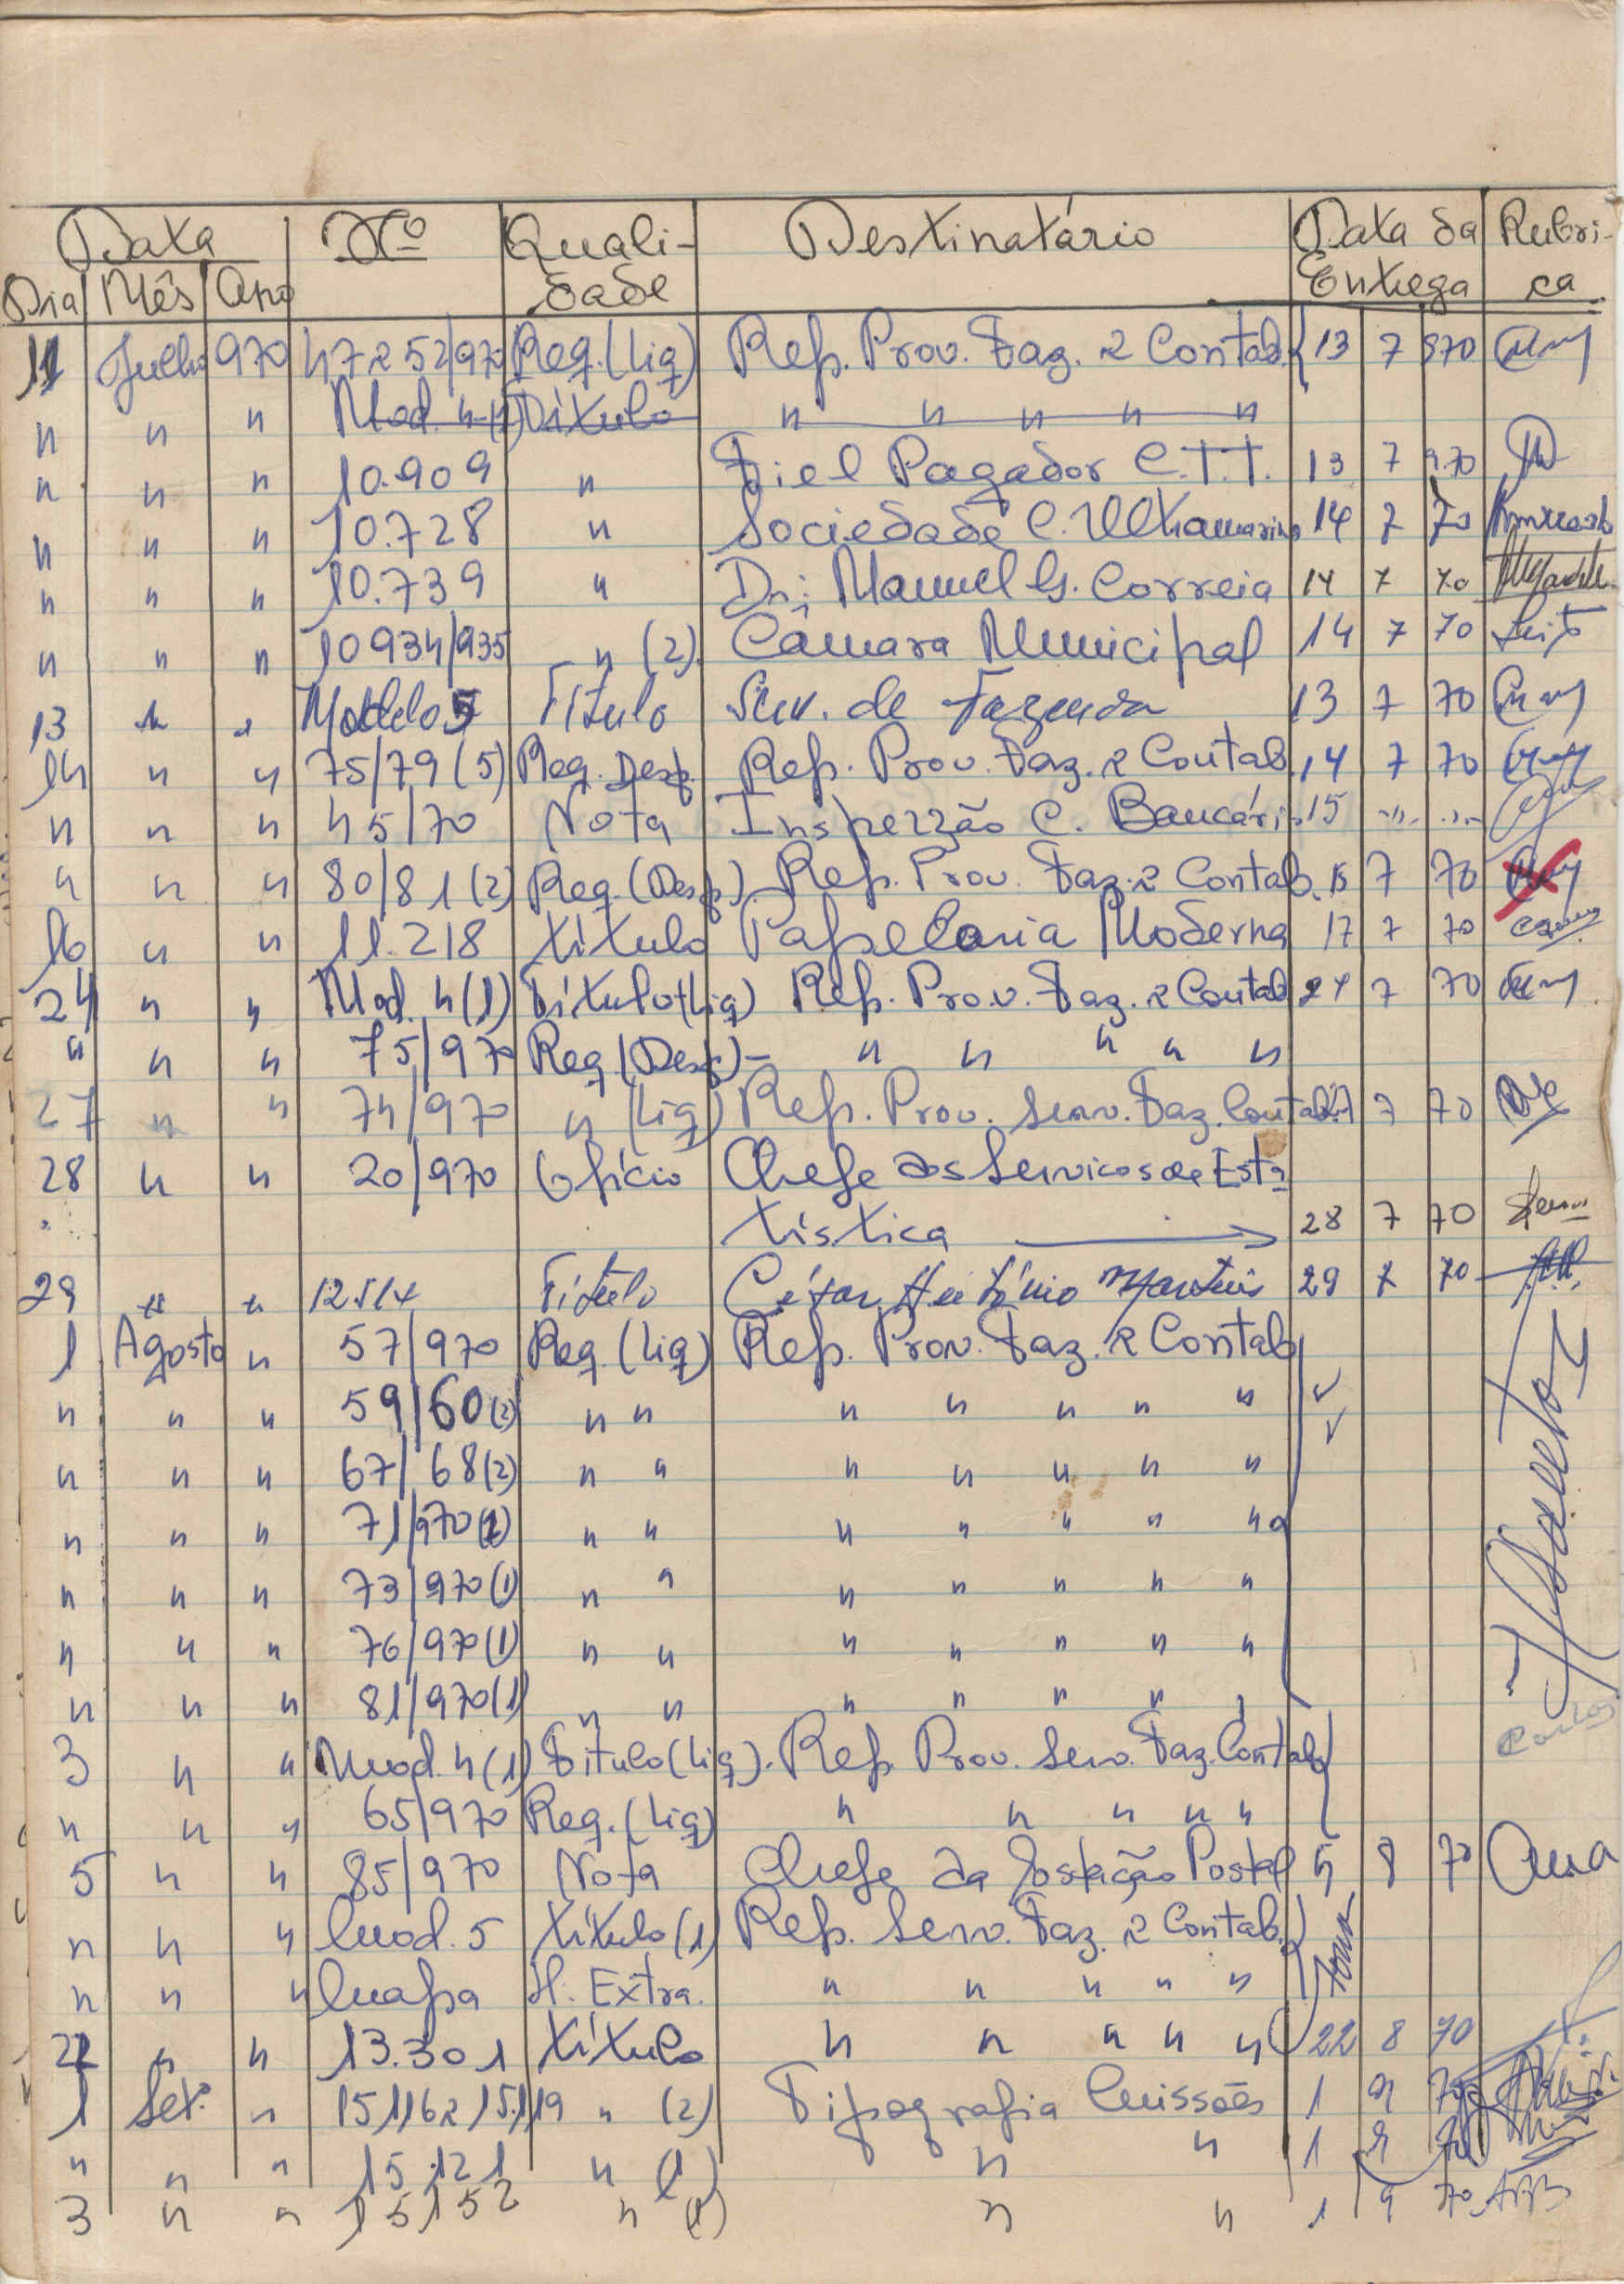 Data Nº Quali- Destinatário Data da Rubri-
Dia Mês Ano dade Entrega ca
11 Julho 970 47 e 52/970 Req. (Liq) Rep. Prov. Faz. e Contab. 13 7 970
" " " Mod. 4 (1) Título " " " " "
" " " 10.909 " Fiel Pagador C.T.T. 13 7 970
" " " 10.728 " Sociedade C. Ultramarino 14 7 70
" " " 10.739 " Dr. Manuel G. Correia 14 7 70
" " " 10934/935 " (2) Câmara Municipal 14 7 70
13 " " Modelo 5 Título Serv. de Fazenda 13 7 70
14 " " 75/79 (5) Req. Desp. Rep. Prov. Faz. e Contab. 14 7 70
" " " 45/70 Nota Inspecção C. Bancári 15 " "
" " " 80/81 (2) Req. (Desp.) Rep. Prov. Faz. e Contab. 15 7 70
16 " " 11.218 título Papelaria Moderna 17 7 70
24 " " Mod. 4 (1) Título (Liq) Rep. Prov. Faz. e Contab 24 7 70
" " " 75/970 Req (Desp) - " " " " "
27 " " 74/970 " (Liq) Rep. Prov. Serv. Faz. Contab. 27 7 70
28 " " 20/970 Ofício Chefe dos Serviços de Esta
tística 28 7 70
29 " " 12514 Título César António Martins 29 7 70
1 Agosto " 57/970 Req. (Liq) Rep. Prov. Faz. e Contab
" " " 59/60 (2) " " " " " " "
" " " 67/68 (2) " " " " " " "
" " " 71/970 (1) " " " " " " "
" " " 73/970 (1) " " " " " " "
" " " 76/970 (1) " " " " " " "
" " " 81/970 (1) " " " " " " "
Carlos
3 " " Mod. 4 (1) Título (Liq). Rep. Prov. Serv. Faz. Contab
" " " 65/970 Req. (Liq) " " " " "
5 " " 85/970 Nota Chefe da Estação Postal 5 8 70
" " " Mod. 5 título (1) Rep. Serv. Faz. e Contab.
" " " Mapa H. Extra. " " " " "
" " 13.301 título " " " " " 22 8 70
1 Set. " " (2) Tipografia Missões 1 9 70
" " " 15.121 " (1) " " 1 9 70
3 " " 15152 " (1) " " 1 9 70